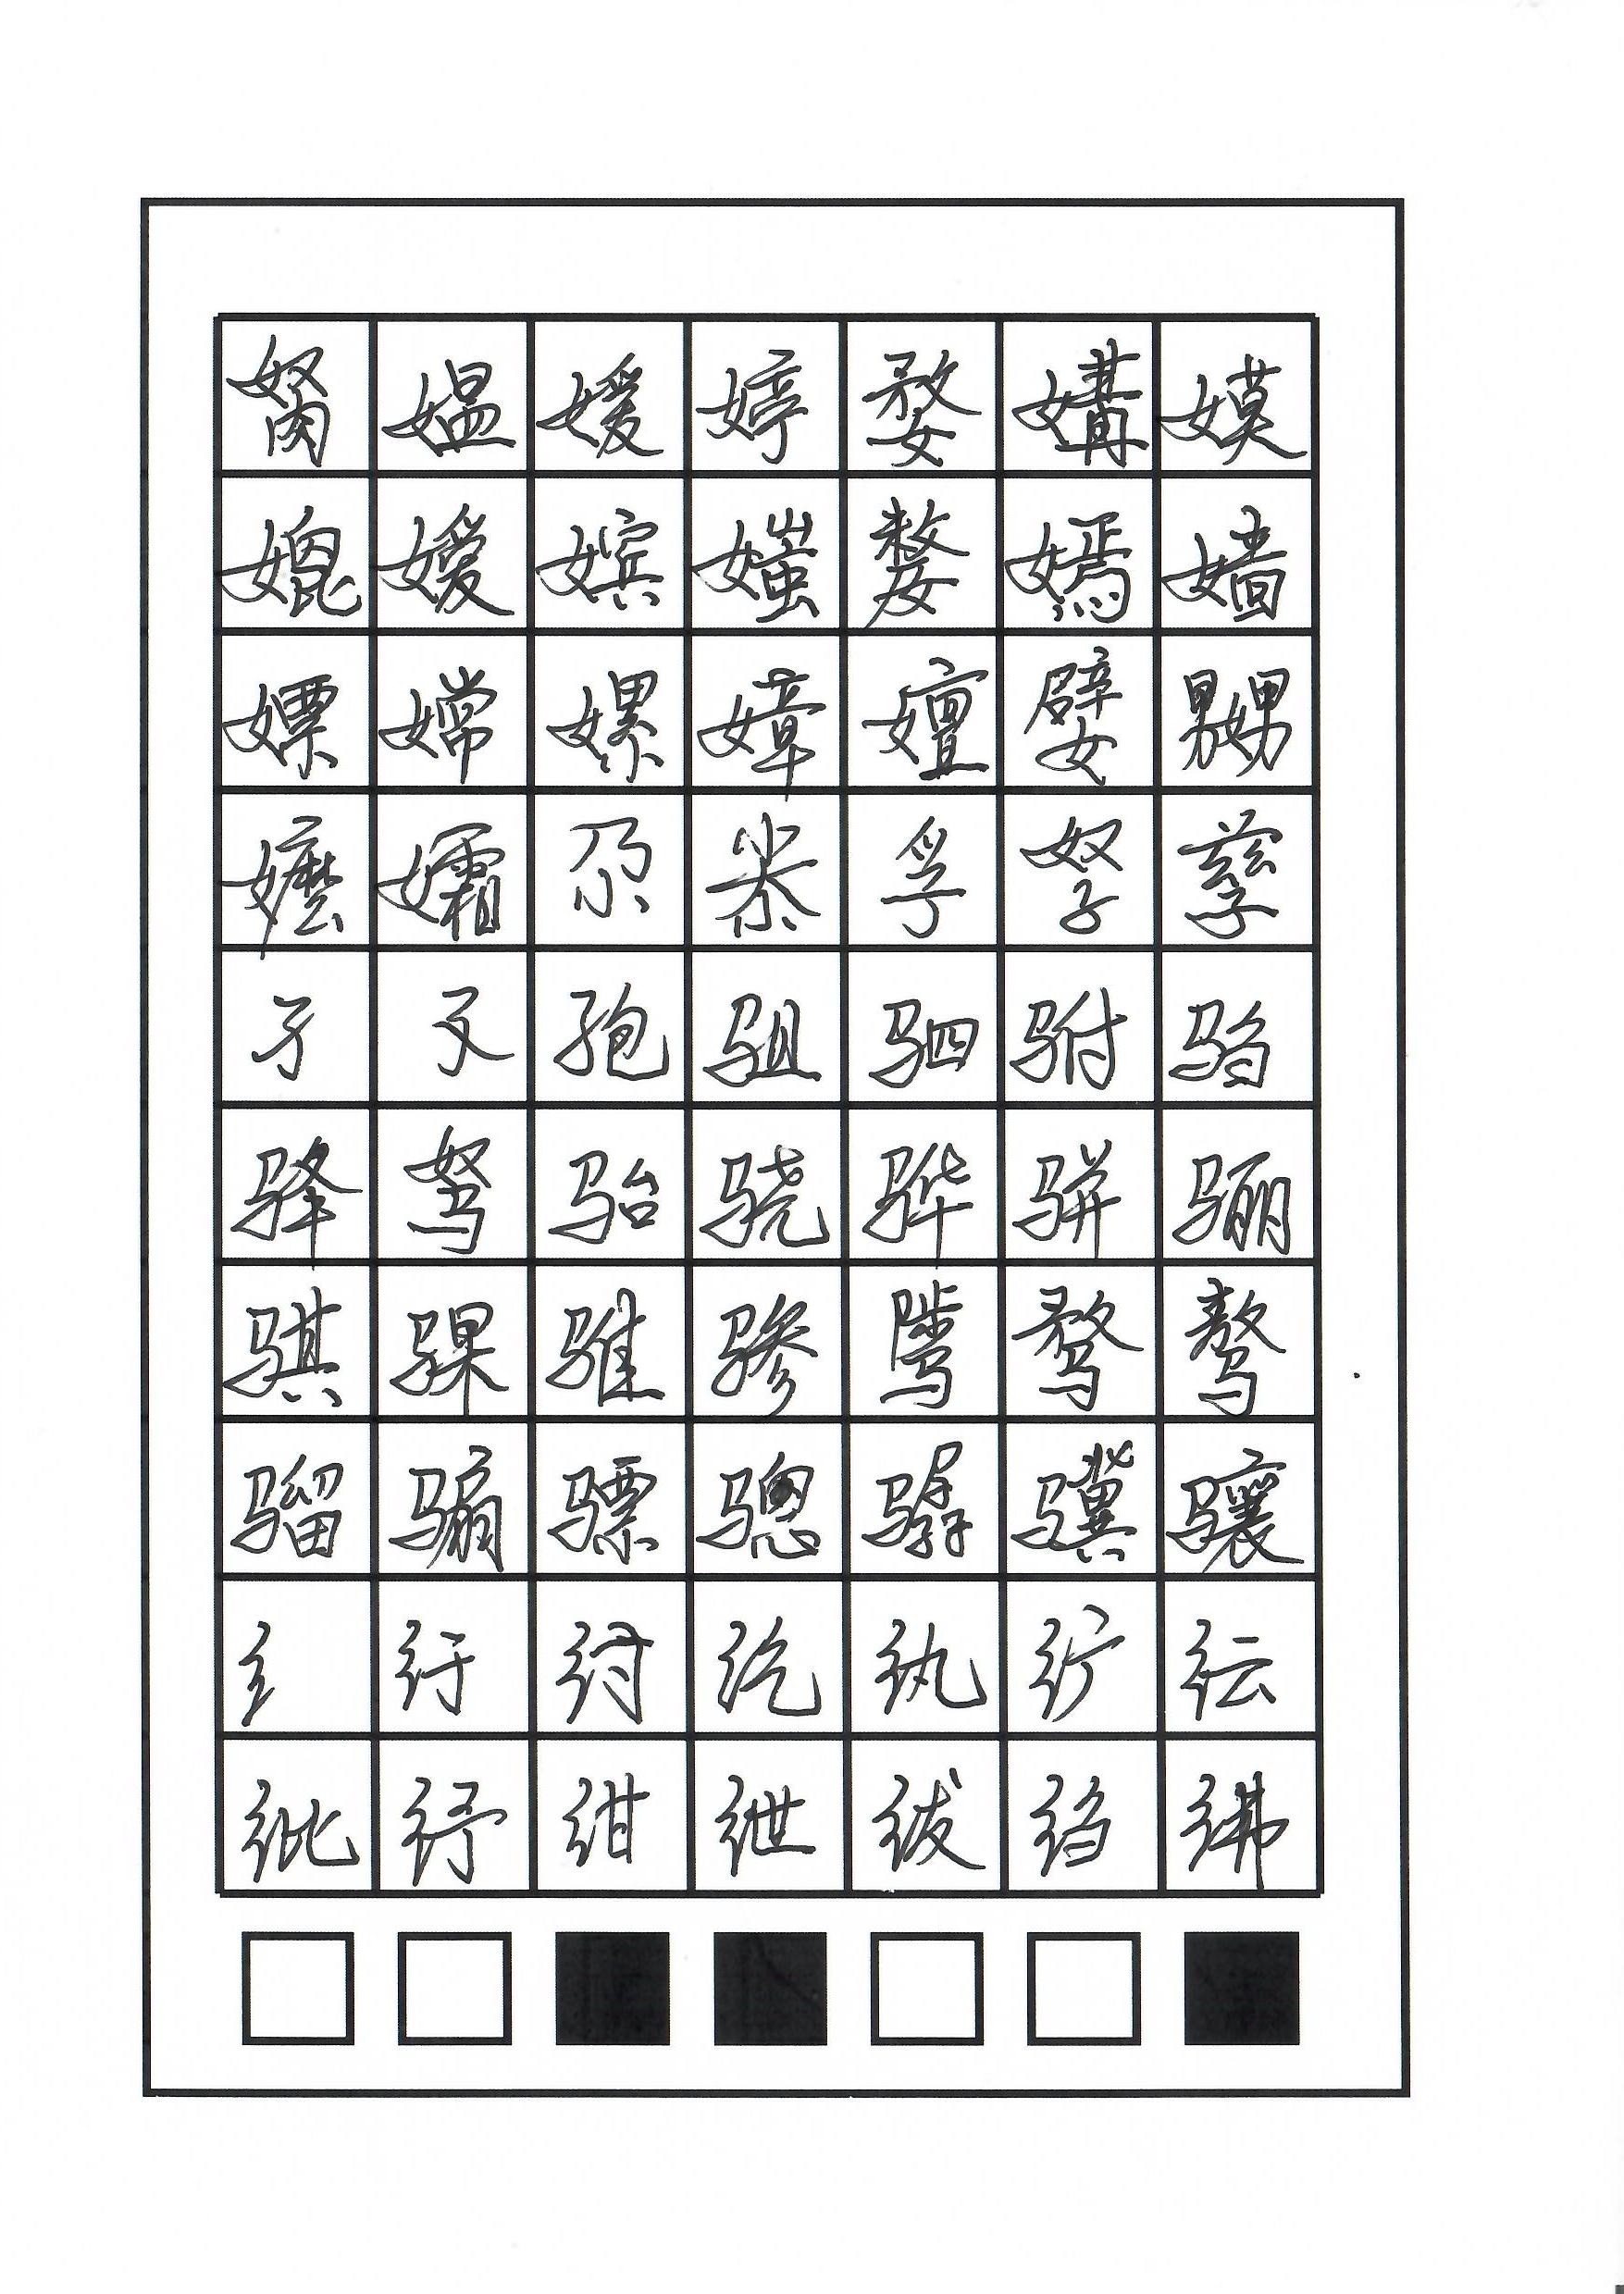 胬媪媛婷婺媾嫫
媲嫒嫔媸嫠嫣嫱
嫖嫦嫘嫜嬗嬖嬲
嬷孀尕尜孚孥孳
孑孓孢驵驷驸驺
驿驽骀骁骅骈骊
骐骒骓骖骘骛骜
骝骟骠骢骣骥骧
纟纡纣纥纨纩纭
纰纾绀绁绂绉绋